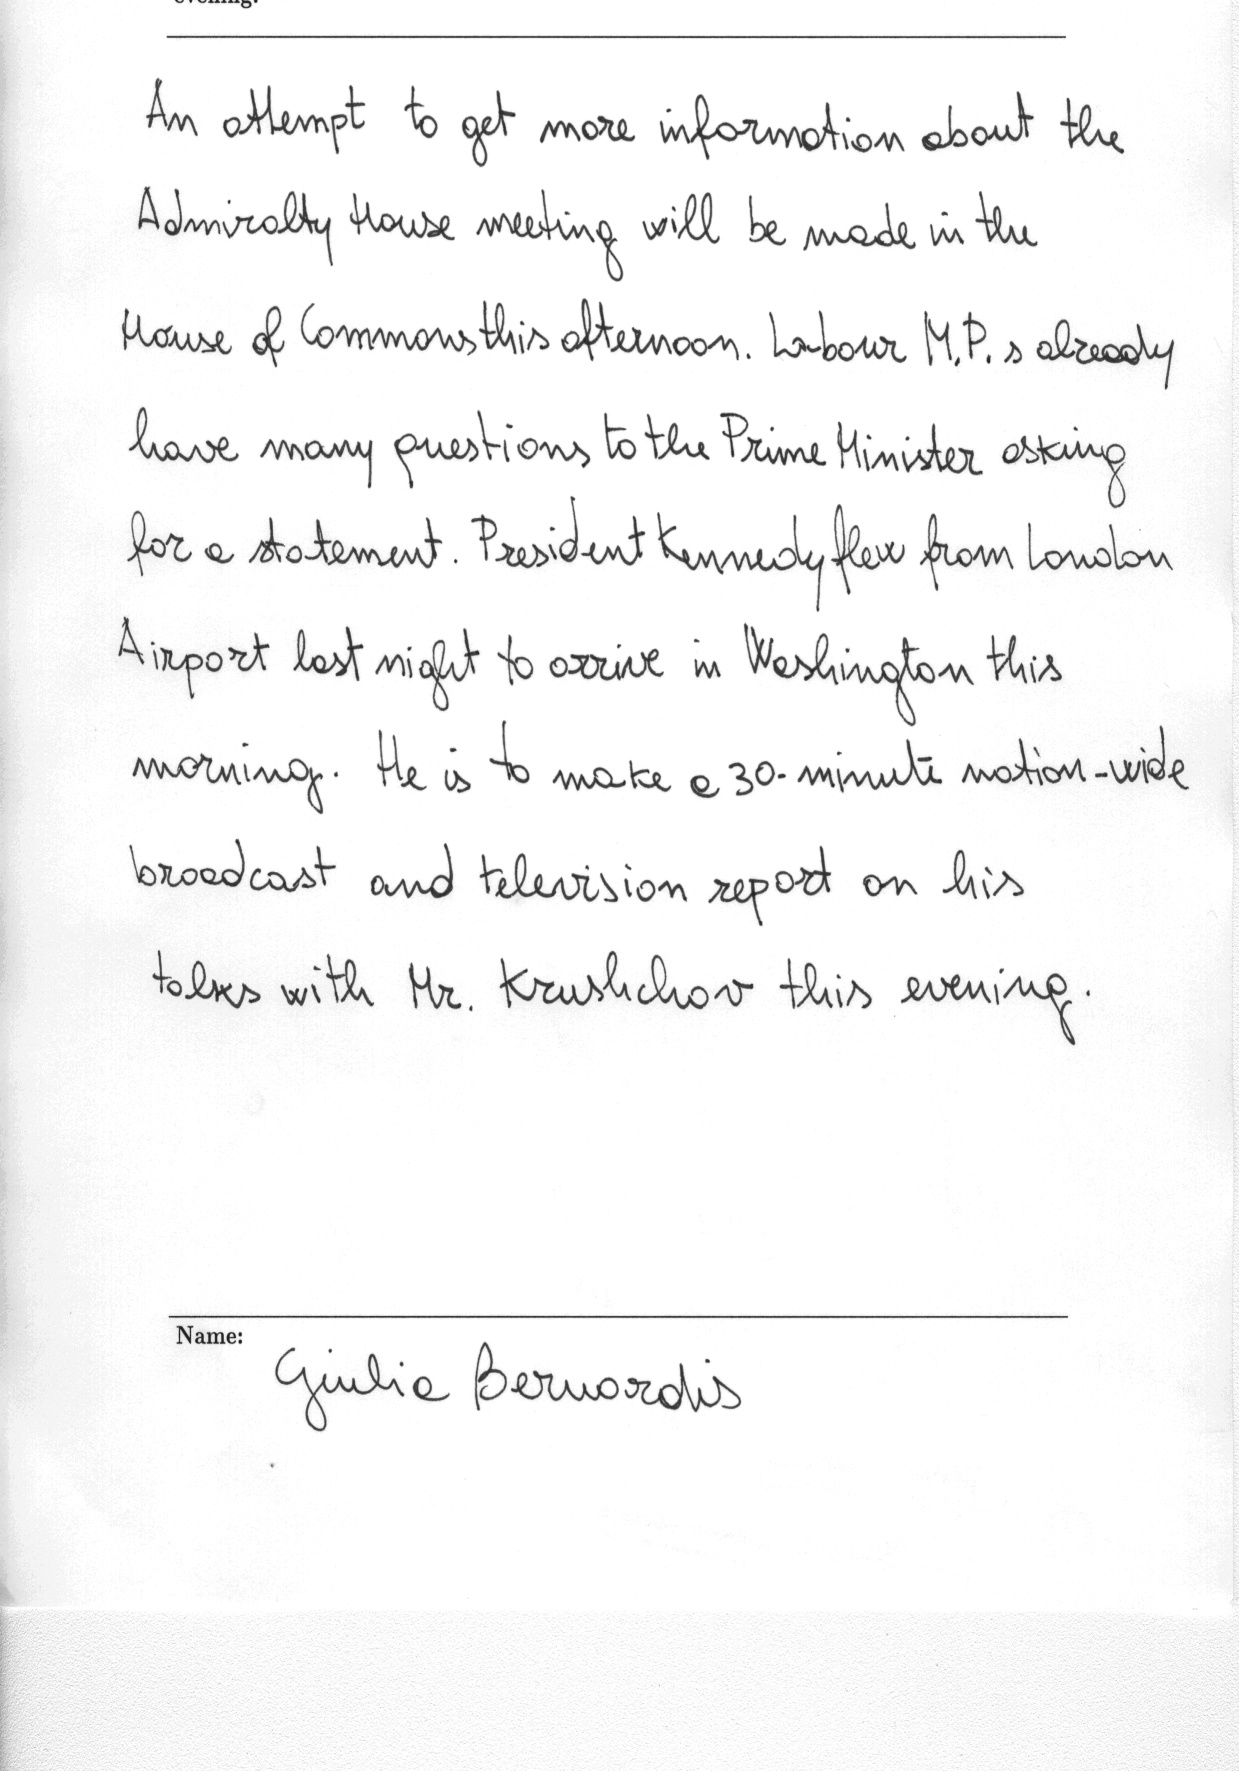 evening.
An attempt to get more information about the
Admiralty House meeting will be made in the
House of Commons this afternoon. Labour M.P.s already
have many questions to the Prime Minister asking
for a statement. President Kennedy flew from London
Airport last night to arrive in Washington this
morning. He is to make a 30-minute nation-wide
broadcast and television report on his
talks with Mr. Krushchov this evening.
Name:
Giulia Bernardis